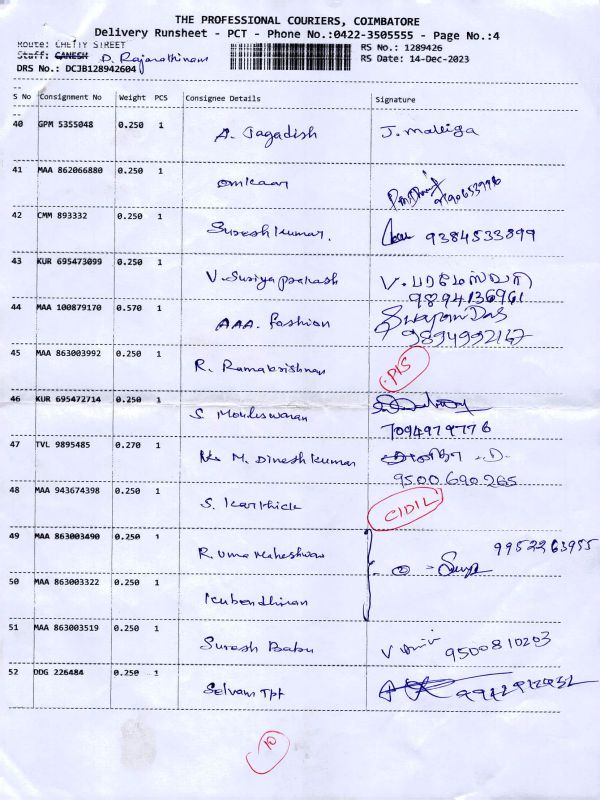 THE PROFESSIONAL COURIERS, COIMBATORE
Delivery Runsheet - PCT - Phone No.:0422-3505555 - Page No.:4
Route: CHETTY STREET RS No.: 1289426
Staff: GANESH D. Rajarathinam RS Date: 14-Dec-2023
DRS No.: DCJB128942604
S No Consignment No Weight PCS Consignee Details Signature
40 GPM 5355048 0.250 1 A. Jagadish J. malliga
41 MAA 862066880 0.250 1 omkaar
42 CMM 893332 0.250 1 Suresh kumar. 9384533899
43 KUR 695473099 0.250 1 V. Suriya prakash V. பரமேஸ்வரி
9894136961
44 MAA 100879170 0.570 1 AAA. fashion Swapan Das
9894992147
45 MAA 863003992 0.250 1 R. Ramakrishnan
46 KUR 695472714 0.250 1 S. Mouleswaran
7094979776
47 TVL 9895485 0.270 1 M. Dinesh kumar D.
9500690265
48 MAA 943674398 0.250 1 S. Karthick CIDIL
49 MAA 863003490 0.250 1 R. uma Maheshwari 9952263955
② - Surya
50 MAA 863003322 0.250 1 Kubendhiran
51 MAA 863003519 0.250 1 Suresh Babu 9500810203
52 DDG 226484 0.250 1 Selvam Tpt
10